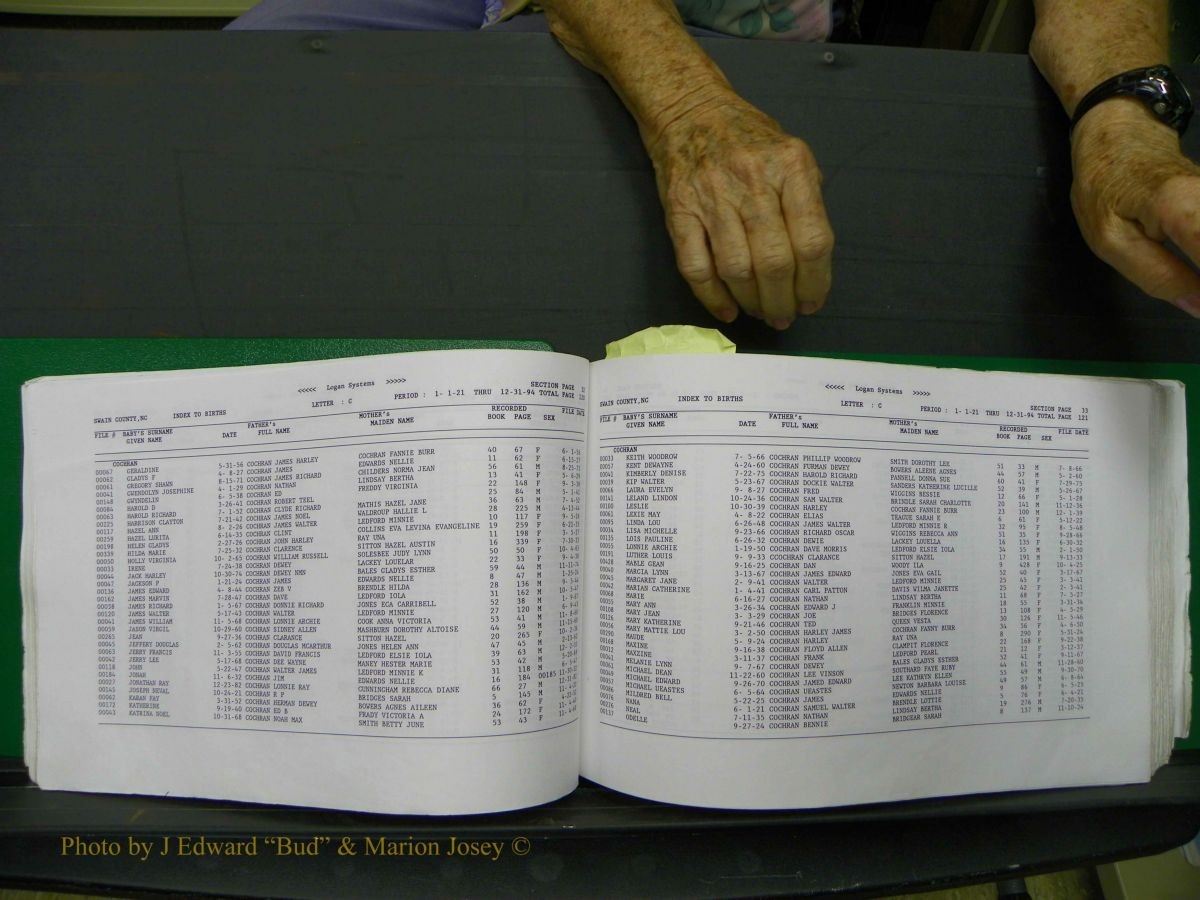 <<<<< Logan Systems >>>>>
SWAIN COUNTY,NC INDEX TO BIRTHS LETTER : C PERIOD : 1- 1-21 THRU 12-31-94 SECTION PAGE TOTAL PAGE 120
FILE # BABY'S SURNAME GIVEN NAME DATE FATHER's FULL NAME MOTHER's MAIDEN NAME RECORDED BOOK PAGE SEX FILE DATE
COCHRAN
00067 GERALDINE 5-31-36 COCHRAN JAMES HARLEY COCHRAN FANNIE BURR 40 67 F
GLADYS F 4- 8-27 COCHRAN JAMES EDWARDS NELLIE 11 62 F
00061 GREGORY SHAWN 8-15-71 COCHRAN JAMES RICHARD CHILDERS NORMA JEAN 56 61 M
00041 GWENDOLYN JOSEPHINE 4- 1-29 COCHRAN NATHAN LINDSAY BERTHA 13 41 F
00148 GWENDLYN 6- 5-38 COCHRAN ED FREDDY VIRGINIA 22 148 F
00084 HAROLD D 3-26-41 COCHRAN ROBERT TEEL 25 84 M
00063 HAROLD RICHARD 7- 1-52 COCHRAN CLYDE RICHARD MATHIS HAZEL JANE 36 63 M
00225 HARRISON CLAYTON 7-21-42 COCHRAN JAMES NOEL WALDROUP HALLIE L 28 225 M
00117 HAZEL ANN 8- 2-26 COCHRAN JAMES WALTER LEDFORD MINNIE 10 117 F
00259 HAZEL LURITA 6-14-35 COCHRAN CLINT COLLINS EVA LEVINA EVANGELINE 19 259 F
00198 HELEN GLADYS COCHRAN JOHN HARLEY RAY UNA 11 198 F
00339 HILDA MARIE 7-25-32 COCHRAN CLARENCE SITTON HAZEL AUSTIN 16 339 F
00050 HOLLY VIRGINIA 10- 2-65 COCHRAN WILLIAM RUSSELL SOLESBEE JUDY LYNN 50 50 F
00033 IRENE 7-24-38 COCHRAN DEWEY LACKEY LOUELAR 22 33 F
00044 JACK HARLEY 10-30-74 COCHRAN DEWEY NMN BALES GLADYS ESTHER 59 44 M
00047 JACKSON P 1-21-24 COCHRAN JAMES EDWARDS NELLIE 8 47 M
00136 JAMES EDWARD 4- 8-44 COCHRAN ZEB V BRENDLE HILDA 28 136 M
00162 JAMES MARVIN 7-28-47 COCHRAN DAVE LEDFORD IOLA 31 162 M
JAMES RICHARD 1- 5-67 COCHRAN DONNIE RICHARD JONES ECA CARRIBELL 52 38 M
00120 JAMES WALTER 5-17-43 COCHRAN WALTER LEDFORD MINNIE 27 120 M
00041 JAMES WILLIAM 11- 5-68 COCHRAN LONNIE ARCHIE COOK ANNA VICTORIA 53 41 M
00059 JASON VIRGIL 10-29-60 COCHRAN SIDNEY ALLEN MASHBURN DOROTHY ALTOISE 44 59 M
00265 JEAN 9-27-36 COCHRAN CLARANCE SITTON HAZEL 20 265 F
00045 JEFFERY DOUGLAS 2- 5-62 COCHRAN DOUGLAS MCARTHUR JONES HELEN ANN 47 45 M
00063 JERRY FRANCIS 11- 3-55 COCHRAN DAVID FRANCIS LEDFORD ELSIE IOLA 39 63 M
00042 JERRY LEE 5-17-68 COCHRAN DEE WAYNE MANEY HESTER MARIE 53 42 M
00118 JOHN 5-22-47 COCHRAN WALTER JAMES LEDFORD MINNIE K 31 118 M
00184 JONAH 11- 6-32 COCHRAN JIM EDWARDS NELLIE 16 184
00027 JONATHAN RAY 12-23-82 COCHRAN LONNIE RAY CUNNINGHAM REBECCA DIANE 66 27 M
00145 JOSEPH NEVAL 10-24-21 COCHRAN R P BRIDGES SARAH 5 145 M
00062 KARAN FAY 3-31-52 COCHRAN HERMAN DEWEY BOWERS AGNES AILEEN 36 62 F
00172 KATHERINE 9-19-40 COCHRAN ED B FRADY VICTORIA A 24 172 F
00043 KATRINA NOEL 10-31-68 COCHRAN NOAH MAX SMITH BETTY JUNE 53 43 F
<<<<< Logan Systems >>>>>
SWAIN COUNTY,NC INDEX TO BIRTHS LETTER : C PERIOD : 1- 1-21 THRU 12-31-94 SECTION PAGE 33 TOTAL PAGE 121
FILE # BABY'S SURNAME GIVEN NAME DATE FATHER's FULL NAME MOTHER's MAIDEN NAME RECORDED BOOK PAGE SEX FILE DATE
COCHRAN
00033 KEITH WOODROW 7- 5-66 COCHRAN PHILLIP WOODROW SMITH DOROTHY LEE 51 33 M 7- 8-66
00057 KENT DEWAYNE 4-24-60 COCHRAN FURMAN DEWEY BOWERS ALEENE AGNES 44 57 M 5- 2-60
00041 KIMBERLY DENISE 7-22-75 COCHRAN HAROLD RICHARD PANSELL DONNA SUE 60 41 F 7-29-75
00039 KIP WALTER 5-23-67 COCHRAN DOCKIE WALTER SANDERS KATHERINE LUCILLE 52 39 M 5-26-67
00066 LAURA EVELYN 9- 8-27 COCHRAN FRED WIGGINS BESSIE 12 66 F 5- 1-28
00141 LELAND LINDON 10-24-36 COCHRAN SAM WALTER BRINDLE SARAH CHARLOTTE 20 141 M 11-12-36
00100 LESLIE 10-30-39 COCHRAN HARLEY COCHRAN FANNIE BURR 23 100 M 12- 1-39
00061 LEXIE MAY 4- 8-22 COCHRAN ELIAS TEAGUE SARAH E 6 61 F 5-12-22
00095 LINDA LOU 6-26-48 COCHRAN JAMES WALTER LEDFORD MINNIE R 32 95 F 8- 5-48
LISA MICHELLE 9-23-66 COCHRAN RICHARD OSCAR WIGGINS REBECCA ANN 51 35 F 9-28-66
00135 LOIS PAULINE 6-26-32 COCHRAN DEWIE LACKEY LOUELLA 16 135 F 6-30-32
00055 LONNIE ARCHIE 1-19-50 COCHRAN DAVE MORRIS LEDFORD ELSIE IOLA 34 55 M 2- 1-50
00191 LUTHER LOUIS 9- 9-33 COCHRAN CLARANCE SITTON HAZEL 17 191 M 9-13-33
00428 MABLE GEAN 9-16-25 COCHRAN DAN WOODY ILA 9 428 F 10- 4-25
00040 MARCIA LYNN 3-13-67 COCHRAN JAMES EDWARD JONES EVA GAIL 52 40 F 3-17-67
00045 MARGARET JANE 2- 9-41 COCHRAN WALTER LEDFORD MINNIE 25 45 F 3- 3-41
00042 MARIAN CATHERINE 1- 4-41 COCHRAN CARL PATTON DAVIS WILMA JANETTE 25 42 F 2- 3-41
00068 MARIE 6-16-27 COCHRAN NATHAN LINDSAY BERTHA 11 68 F 7- 3-27
00055 MARY ANN 3-26-34 COCHRAN EDWARD J FRANKLIN MINNIE 18 55 F 3-31-34
00108 MARY JEAN 3- 3-29 COCHRAN JOE BRIDGES FLORENCE 13 108 F 4- 5-29
00126 MARY KATHERINE 9-21-46 COCHRAN TED QUEEN VESTA 30 126 F 11- 5-46
00056 MARY MATTIE LOU 3- 2-50 COCHRAN HARLEY JAMES COCHRAN FANNY BURR 34 56 F 4- 6-50
00290 MAUDE 5- 9-24 COCHRAN HARLEY RAY UNA 8 290 F 5-31-24
00168 MAXINE 9-16-38 COCHRAN FLOYD ALLEN CLAMPIT FLORENCE 22 168 F 9-22-38
00012 MAXZINE 3-11-37 COCHRAN FRANK LEDFORD PEARL 21 12 F 3-12-37
00041 MELANIE LYNN 9- 7-67 COCHRAN DEWEY BALES GLADYS ESTHER 52 41 F 9-11-67
00061 MICHAEL DEAN 11-22-60 COCHRAN LEE VINSON SOUTHARD FAYE RUBY 44 61 M 11-28-60
00049 MICHAEL EDWARD 9-26-70 COCHRAN JAMED EDWARD LEE KATHRYN ELLEN 55 49 M 9-30-70
00057 MICHAEL UEASTES 6- 5-64 COCHRAN UEASTES NEWTON BARBARA LOUISE 49 57 M 6- 8-64
00086 MILDRED NELL 5-22-25 COCHRAN JAMES EDWARDS NELLIE 9 86 F 6- 5-25
00076 NANA 6- 1-21 COCHRAN SAMUEL WALTER BRENDLE LOTTIE 5 76 F 6- 4-21
00276 NEAL 7-11-35 COCHRAN NATHAN LINDSAY BERTHA 19 276 M 7-20-35
00137 ODELLE 9-27-24 COCHRAN BENNIE BRIDGEAR SARAH 8 137 M 11-10-24
Photo by J Edward “Bud” & Marion Josey ©